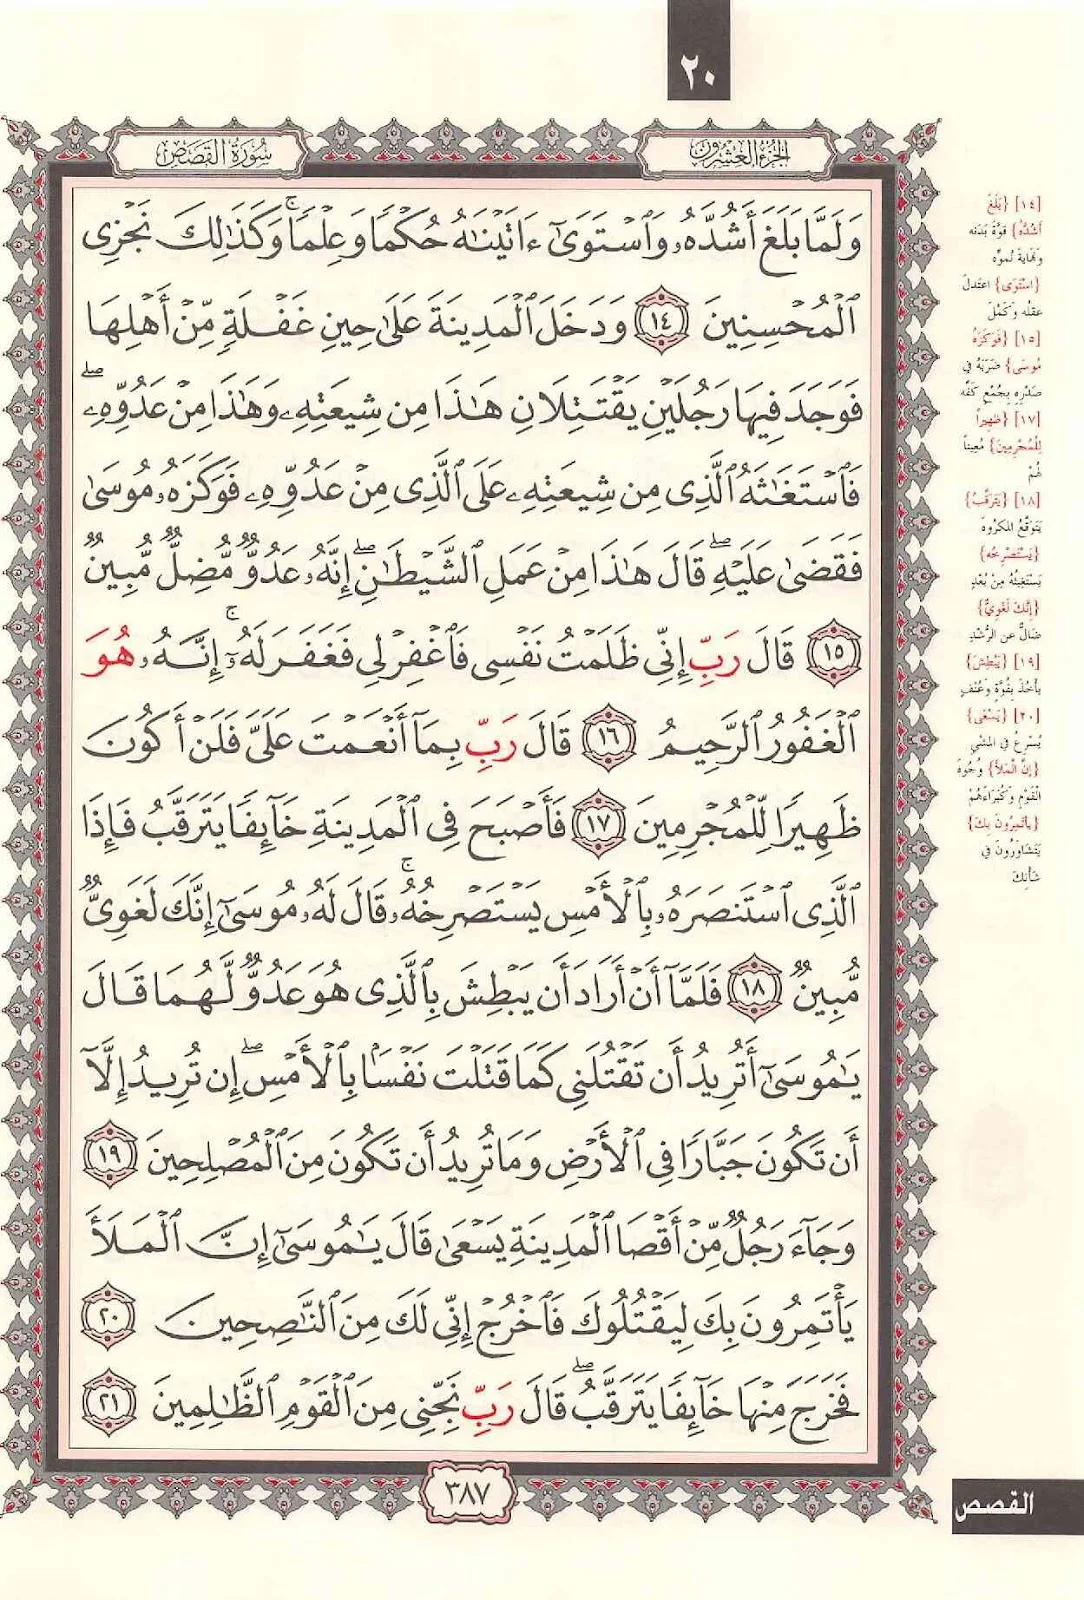 ٢٠
الجزء العشرون
سورة القصص
وَلَمَّا بَلَغَ أَشُدَّهُۥ وَٱسْتَوَىٰٓ ءَاتَيْنَٰهُ حُكْمًا وَعِلْمًا ۚ وَكَذَٰلِكَ نَجْزِى
ٱلْمُحْسِنِينَ ١٤ وَدَخَلَ ٱلْمَدِينَةَ عَلَىٰ حِينِ غَفْلَةٍ مِّنْ أَهْلِهَا
فَوَجَدَ فِيهَا رَجُلَيْنِ يَقْتَتِلَانِ هَٰذَا مِن شِيعَتِهِۦ وَهَٰذَا مِنْ عَدُوِّهِۦ ۖ
فَٱسْتَغَٰثَهُ ٱلَّذِى مِن شِيعَتِهِۦ عَلَى ٱلَّذِى مِنْ عَدُوِّهِۦ فَوَكَزَهُۥ مُوسَىٰ
فَقَضَىٰ عَلَيْهِ ۖ قَالَ هَٰذَا مِنْ عَمَلِ ٱلشَّيْطَٰنِ ۖ إِنَّهُۥ عَدُوٌّ مُّضِلٌّ مُّبِينٌ
١٥ قَالَ رَبِّ إِنِّى ظَلَمْتُ نَفْسِى فَٱغْفِرْ لِى فَغَفَرَ لَهُۥٓ ۚ إِنَّهُۥ هُوَ
ٱلْغَفُورُ ٱلرَّحِيمُ ١٦ قَالَ رَبِّ بِمَآ أَنْعَمْتَ عَلَىَّ فَلَنْ أَكُونَ
ظَهِيرًا لِّلْمُجْرِمِينَ ١٧ فَأَصْبَحَ فِى ٱلْمَدِينَةِ خَآئِفًا يَتَرَقَّبُ فَإِذَا
ٱلَّذِى ٱسْتَنصَرَهُۥ بِٱلْأَمْسِ يَسْتَصْرِخُهُۥ ۚ قَالَ لَهُۥ مُوسَىٰٓ إِنَّكَ لَغَوِىٌّ
مُّبِينٌ ١٨ فَلَمَّآ أَنْ أَرَادَ أَن يَبْطِشَ بِٱلَّذِى هُوَ عَدُوٌّ لَّهُمَا قَالَ
يَٰمُوسَىٰٓ أَتُرِيدُ أَن تَقْتُلَنِى كَمَا قَتَلْتَ نَفْسًۢا بِٱلْأَمْسِ ۖ إِن تُرِيدُ إِلَّآ
أَن تَكُونَ جَبَّارًا فِى ٱلْأَرْضِ وَمَا تُرِيدُ أَن تَكُونَ مِنَ ٱلْمُصْلِحِينَ ١٩
وَجَآءَ رَجُلٌ مِّنْ أَقْصَا ٱلْمَدِينَةِ يَسْعَىٰ قَالَ يَٰمُوسَىٰٓ إِنَّ ٱلْمَلَأَ
يَأْتَمِرُونَ بِكَ لِيَقْتُلُوكَ فَٱخْرُجْ إِنِّى لَكَ مِنَ ٱلنَّٰصِحِينَ ٢٠
فَخَرَجَ مِنْهَا خَآئِفًا يَتَرَقَّبُ ۖ قَالَ رَبِّ نَجِّنِى مِنَ ٱلْقَوْمِ ٱلظَّٰلِمِينَ ٢١
٣٨٧
[١٤] {بَلَغَ
أَشُدَّهُ} قوّة بدنه
ونهاية نموّه
{اسْتَوَى} اعتدل
عقله وكمل
[١٥] {فَوَكَزَهُ
مُوسَى} ضربه في
صدره بجمع كفّه
[١٧] {ظَهِيراً
لِلْمُجْرِمِينَ} معيناً
لهم
[١٨] {يَتَرَقَّبُ}
يتوقّع المكروه
{يَسْتَصْرِخُه}
يستغيثه من بُعْدٍ
{إِنَّكَ لَغَوِيٌّ}
ضالّ عن الرّشد
[١٩] {يَبْطِشَ}
يأخذ بقوّة وعنف
[٢٠] {يَسْعَى}
يُسرع في المشي
{إِنَّ الْمَلَأَ} وجوه
القوم وكبراءهم
{يَأْتَمِرُونَ بِكَ}
يتشاورون في
شأنك
القصص